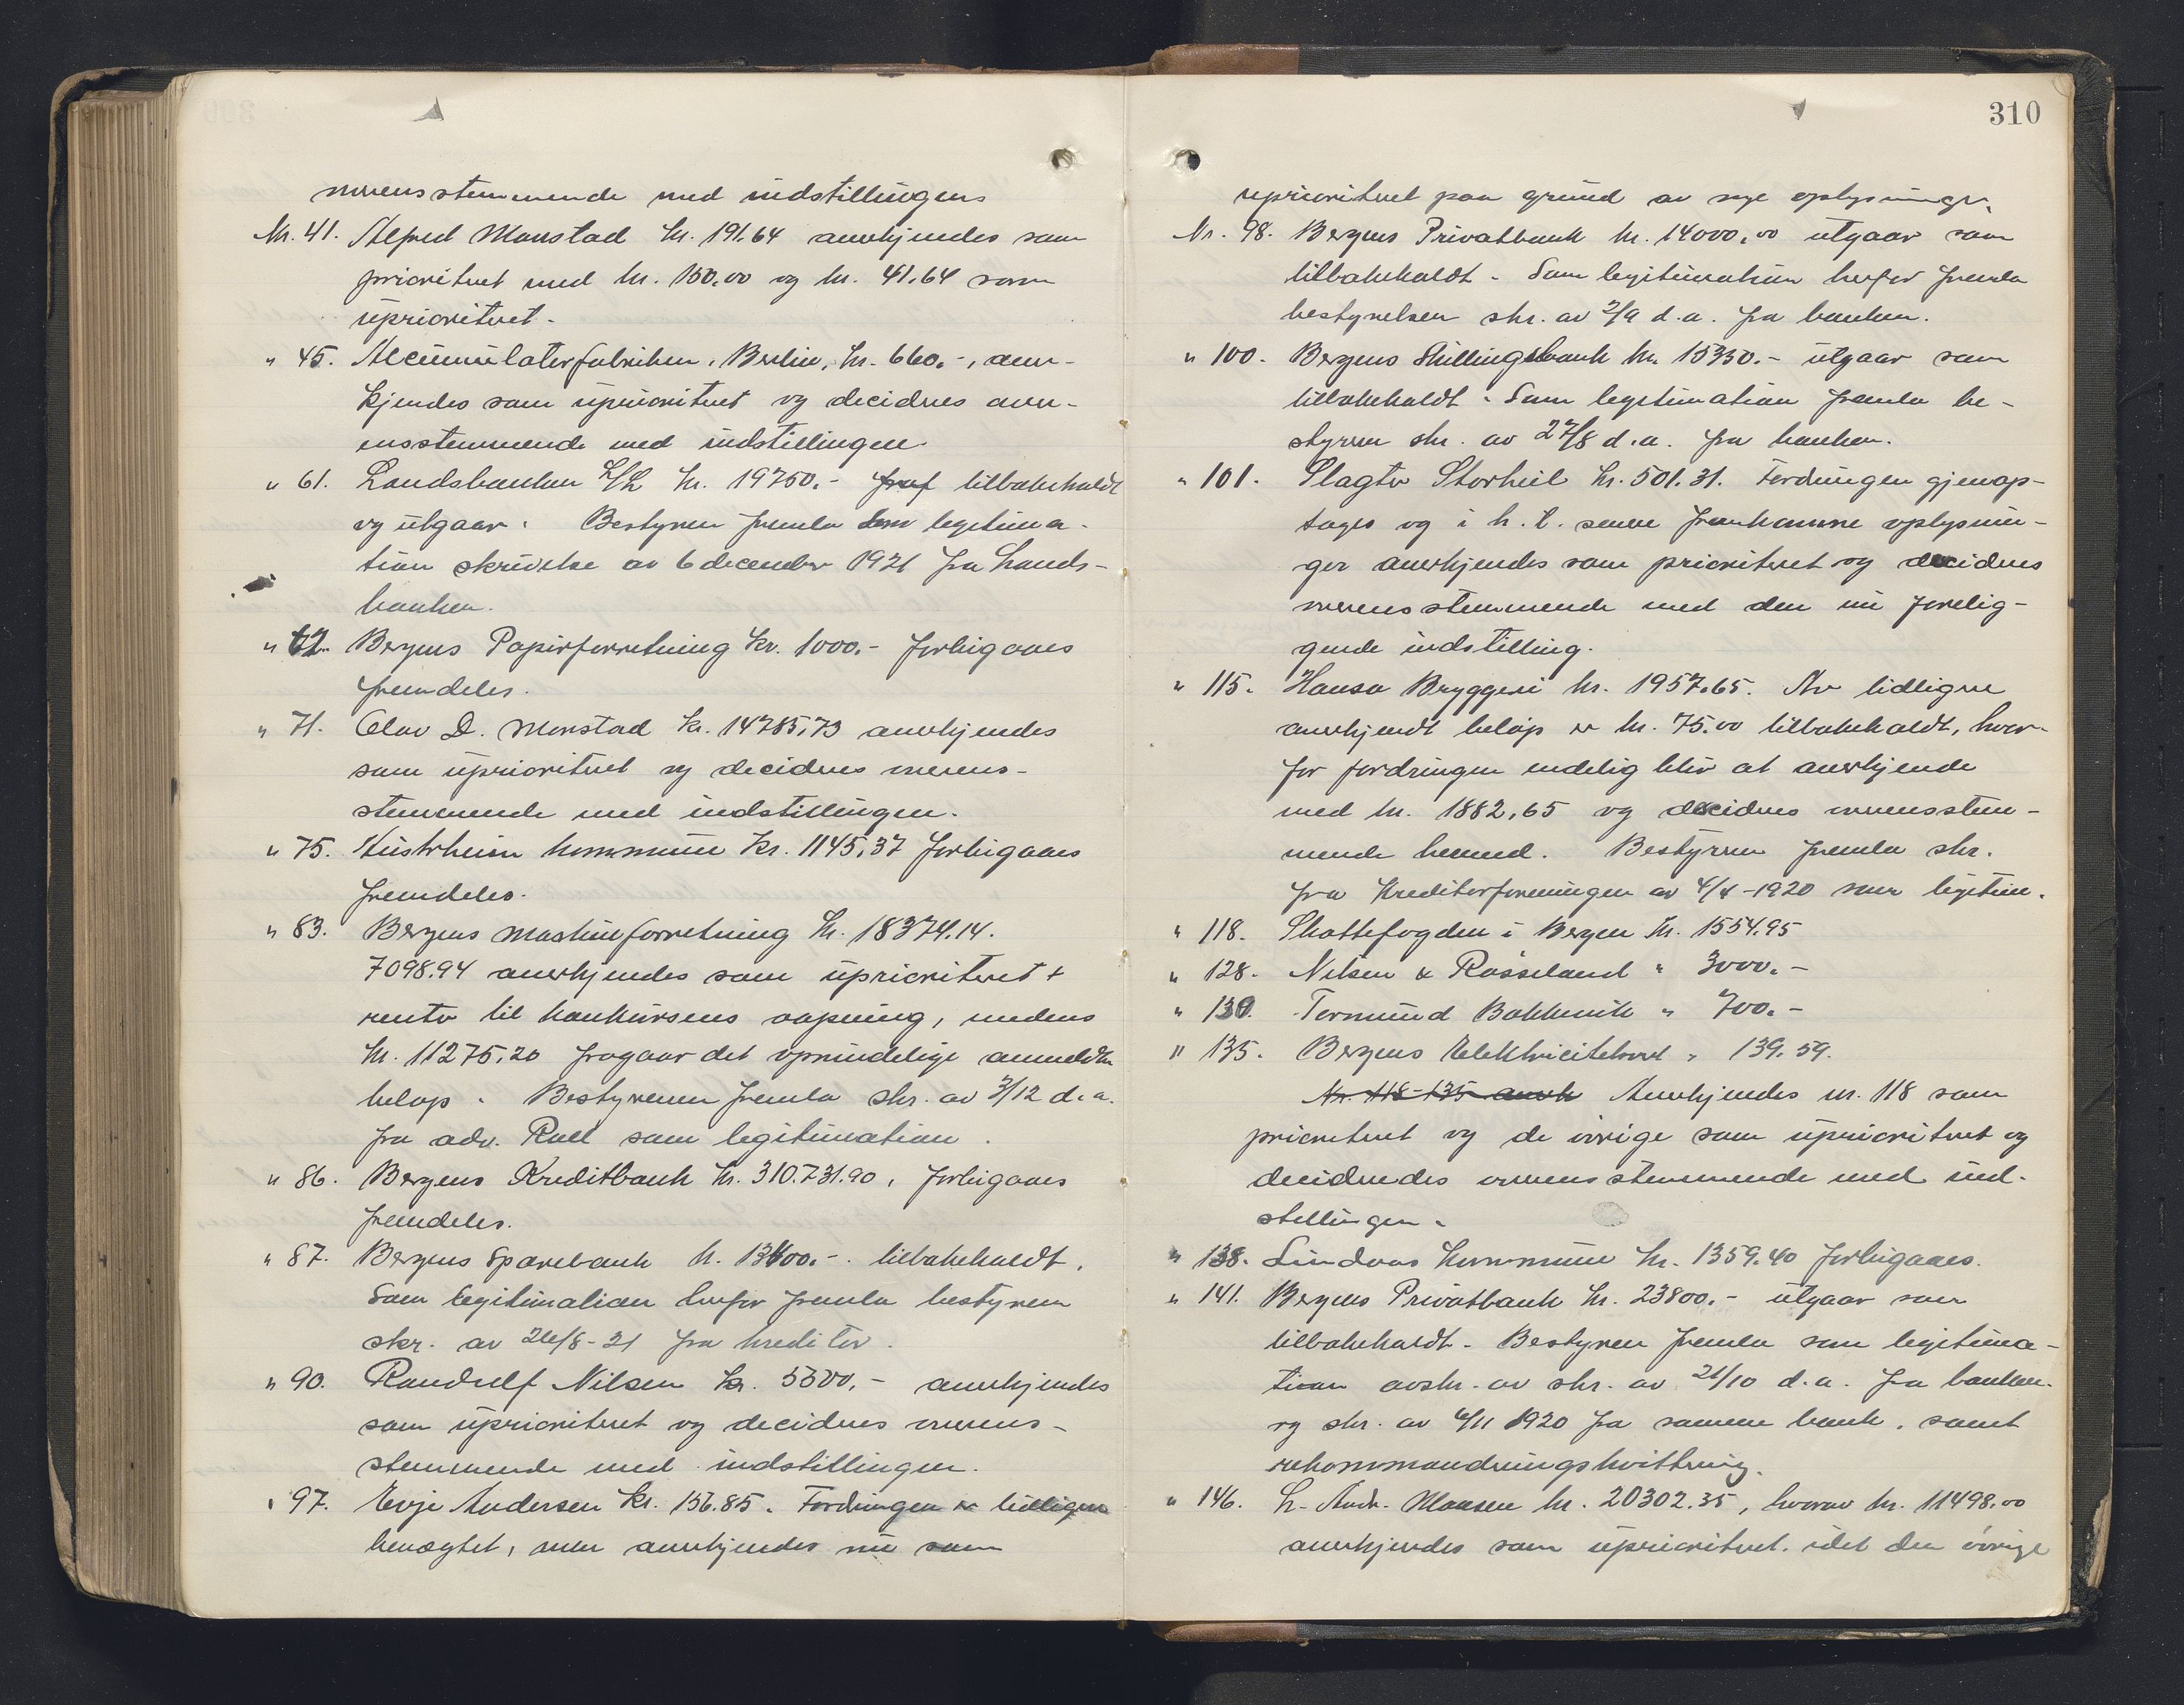 overensstemmende med indstillingens
Nr. 41. Alfred Monstad kr. 191.64 anerkjendes som
prioritert med kr. 150.00 og kr. 41.64 som
uprioritert.
" 45. Accumulatorfabriken, Berlin, kr. 660.-, aner-
kjendes som uprioritert og decideres over-
ensstemmende med indstillingen.
" 61. Landsbanken A/L kr. 19750.- tilbakeholdt
og utgaar. Bestyreren fremla som legitima-
tion skrivelse av 6 december 1921 fra Lands-
banken.
" 62. Bergens Papirforretning kr. 1000.- forbigaaes
fremdeles.
" 71. Olav D. Monstad kr. 14785,73 anerkjendes
som uprioritert og decideres overens-
stemmende med indstillingen.
" 75. Austrheim kommune kr. 1145,37 forbigaaes
fremdeles.
" 83. Bergens Maskinforretning kr. 18374.14.
7098.94 anerkjendes som uprioritert +
renter til konkursens aapning, medens
kr. 11275,20 fragaar det oprindelige anmeldte
beløp. Bestyreren fremla skr. av 3/12 d.a.
fra adv. Roll som legitimation.
" 86. Bergens Kreditbank kr. 310.731.90, forbigaaes
fremdeles.
" 87. Bergens Sparebank k. 13400.-. tilbakeholdt.
Som legitimation herfor fremla bestyreren
skr. av 26/8-21 fra kreditor.
" 90. Randulf Nilsen kr. 5500,- anerkjendes
som uprioritert og decideres overens-
stemmende med indstillingen.
" 97. Evje Andersen kr. 156.85. Fordringen er tidligere
benegtet, men anerkjendes nu som
310
uprioritert paa grund av nye oplysninger.
Nr. 98. Bergens Privatbank kr. 14000,00 utgaar som
tilbakeholdt. Som legitimation herfor fremla
bestyrelsen skr. av 2/9 d.a. fra banken.
" 100. Bergens Skillingsbank kr. 15350.- utgaar som
tilbakeholdt. Som legitimation fremla be-
styreren skr. av 27/8 d.a. fra banken.
" 101. Slagter Storheil kr. 501.31. Fordringen gjenop-
tages og i h.t. senere fremkomne oplysnin-
ger anerkjendes som prioritert og decideres
overensstemmende med den nu forelig-
gende indstilling.
" 115. Hansa Bryggeri kr. 1957.65. Av tidligere
anerkjendt beløp er kr. 75.00 tilbakeholdt, hvor-
for fordringen endelig blir at anerkjende
med kr. 1882,65 og decideres overensstem-
mende hermed. Bestyreren fremla skr.
fra Kreditorforeningen av 4/4-1920 som legitim.
" 118. Skattefogden i Bergen kr. 1554.95
" 128. Nilsen & Røsseland " 3000.-
" 130. Tormund Bakkevik " 700.-
" 135. Bergens Elektricitetsverk " 139.59.
Nr. 118-135 anerk Anerkjendes nr. 118 som
prioritert og de øvrige som uprioritert og
decideredes overensstemmende med ind-
stillingen.
" 138. Lindaas kommune kr. 1359.40 forbigaaes.
" 141. Bergens Privatbank kr. 23800.- utgaar som
tilbakeholdt. Bestyreren fremla som legitima-
tion avskr. av skr. av 21/10 d.a. fra banken
og skr. av 4/11 1920 fra samme bank, samt
rekommanderingskvittering.
" 146. L. Andr. Monsen kr. 20302.35, hvorav kr. 11498.00
anerkjendes som uprioritert, idet den øvrige